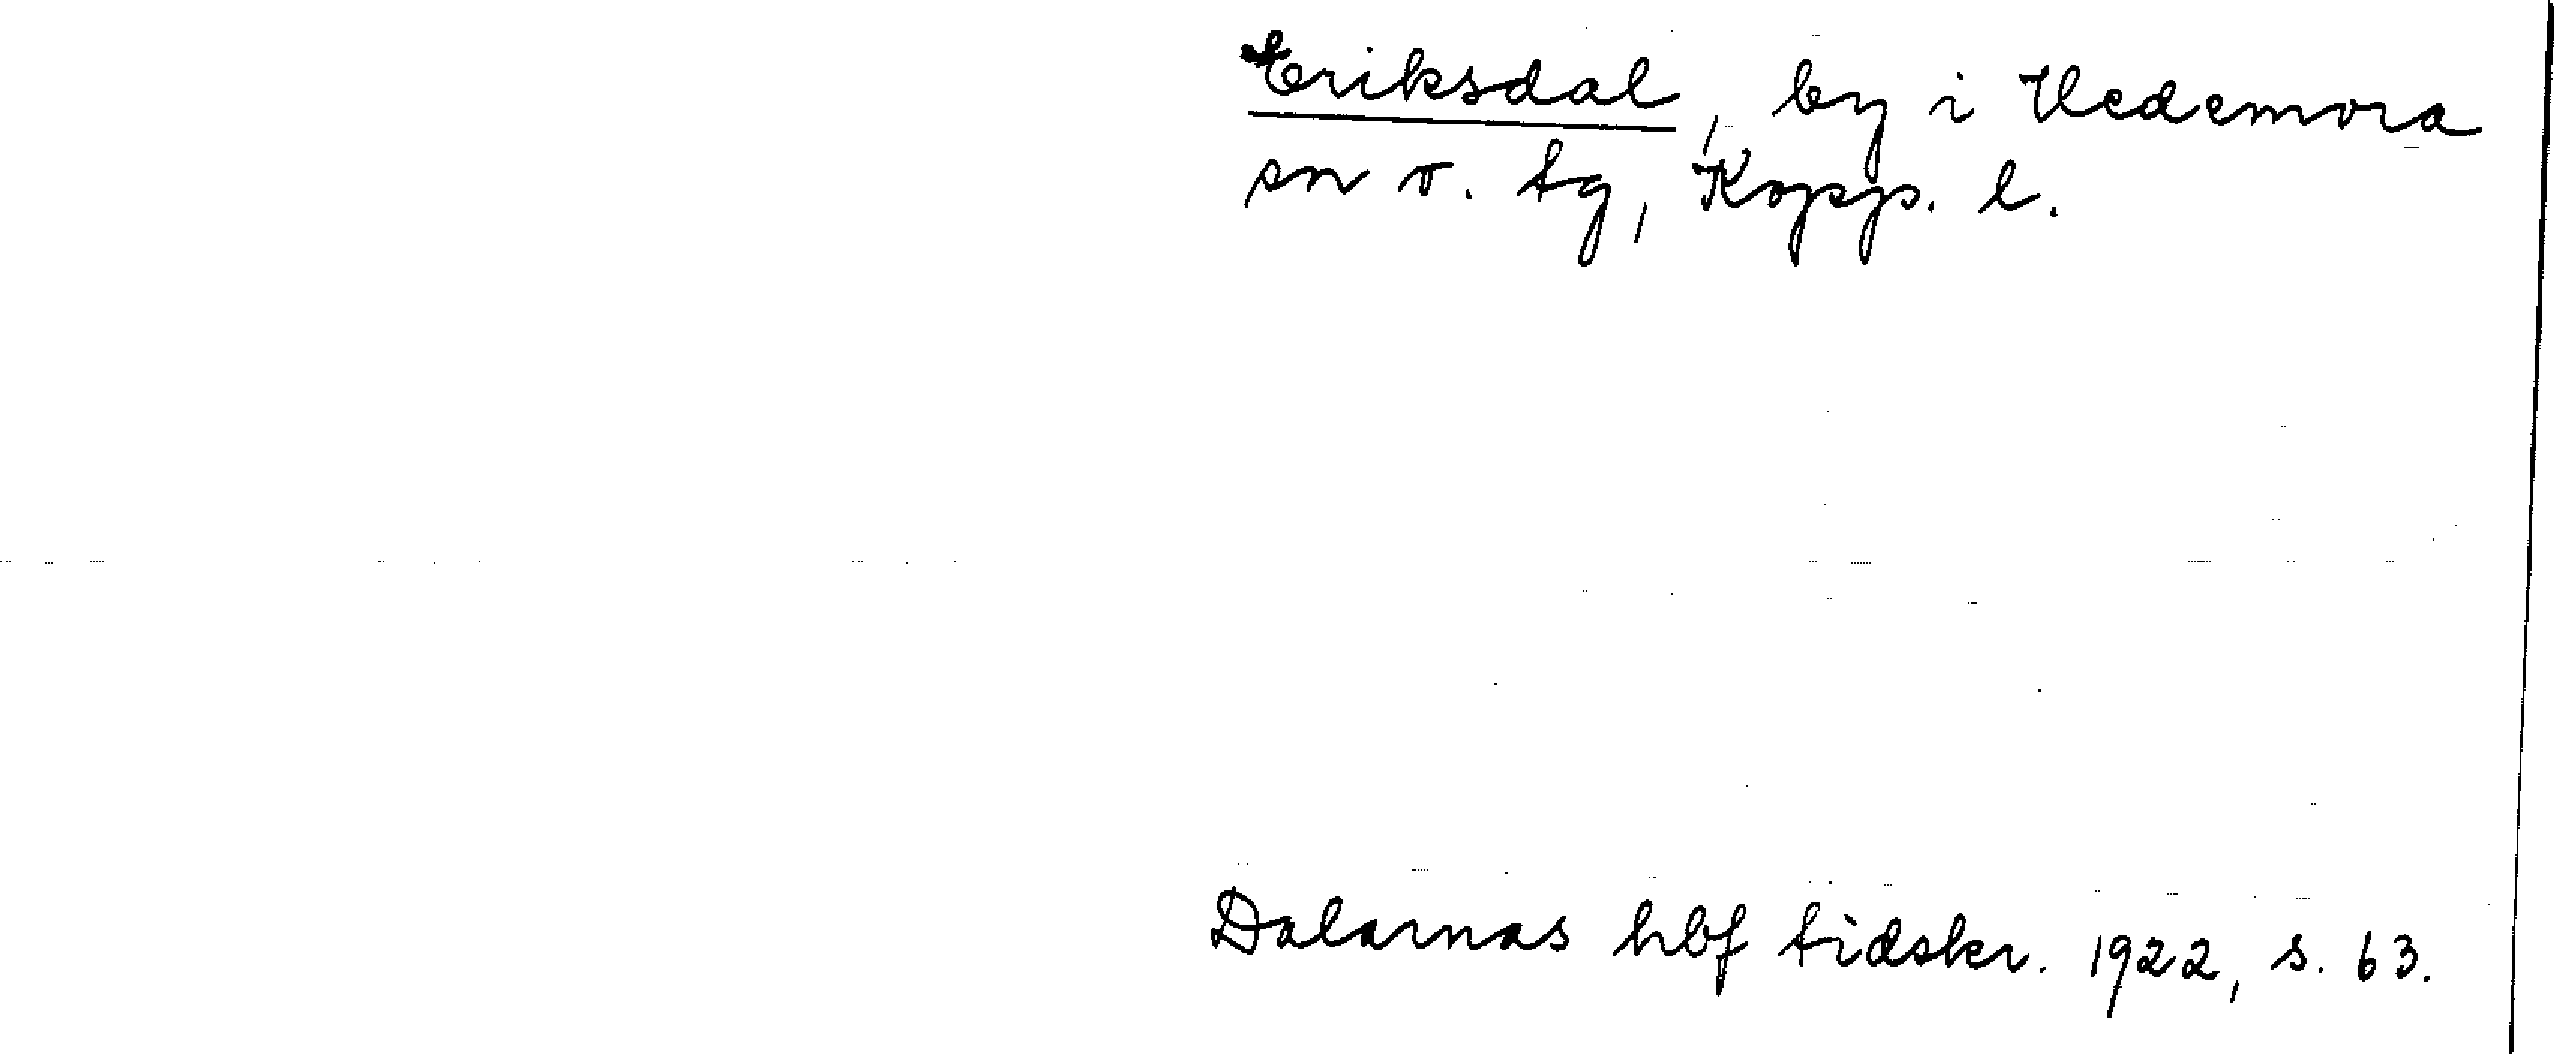 Eriksdal, by i Hedemora
sn o. tg, Kopp. l.
Dalarnas hbf tidskr. 1922, s. 63.